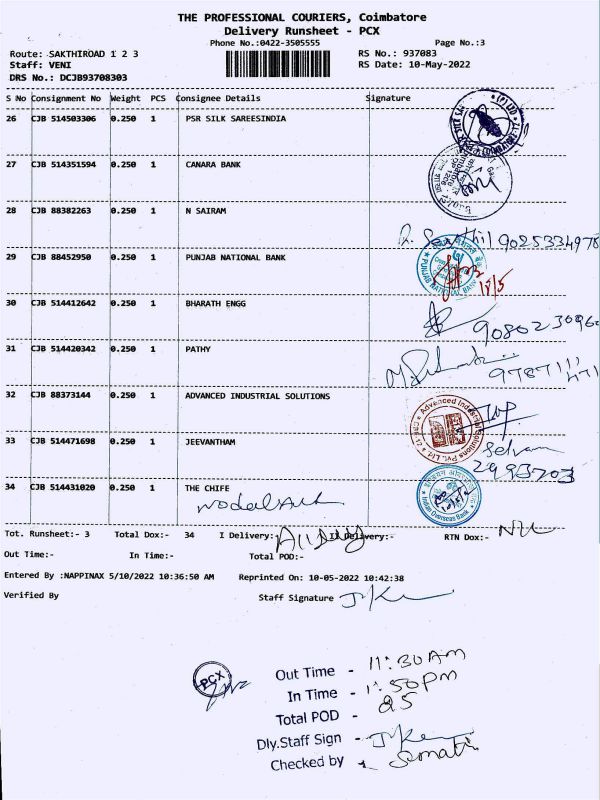 THE PROFESSIONAL COURIERS, Coimbatore
Delivery Runsheet - PCX
Phone No.:0422-3505555 Page No.:3
Route: SAKTHIROAD 1 2 3 RS No.: 937083
Staff: VENI RS Date: 10-May-2022
DRS No.: DCJB93708303
S No Consignment No Weight PCS Consignee Details Signature
26 CJB 514503306 0.250 1 PSR SILK SAREESINDIA
27 CJB 514351594 0.250 1 CANARA BANK
28 CJB 88382263 0.250 1 N SAIRAM
9025334978
29 CJB 88452950 0.250 1 PUNJAB NATIONAL BANK
PUNJAB NATIONAL BANK
30 CJB 514412642 0.250 1 BHARATH ENGG
31 CJB 514420342 0.250 1 PATHY
32 CJB 88373144 0.250 1 ADVANCED INDUSTRIAL SOLUTIONS
Advanced Industrial Solutions Pvt. Ltd.
33 CJB 514471698 0.250 1 JEEVANTHAM
Selvam
2993703
34 CJB 514431020 0.250 1 THE CHIFE
Indian Overseas Bank
Tot. Runsheet:- 3 Total Dox:- 34 I Delivery: II Delivery:- RTN Dox:-
Out Time:- In Time:- Total POD:-
Entered By :NAPPINAX 5/10/2022 10:36:50 AM Reprinted On: 10-05-2022 10:42:38
Verified By Staff Signature
PCX
Out Time - 11:30AM
In Time - 1:50PM
Total POD - 25
Dly.Staff Sign -
Checked by